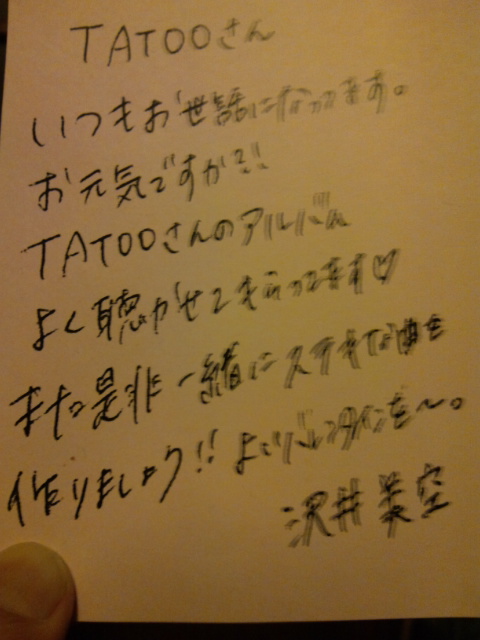 TATOOさん
いつもお世話になってます。
お元気ですか?!!
TATOOさんのアルバム
よく聴かせてもらってます♡
また是非一緒にステキな曲を
作りましょう!! よいバレンタインを〜。
沢井美空